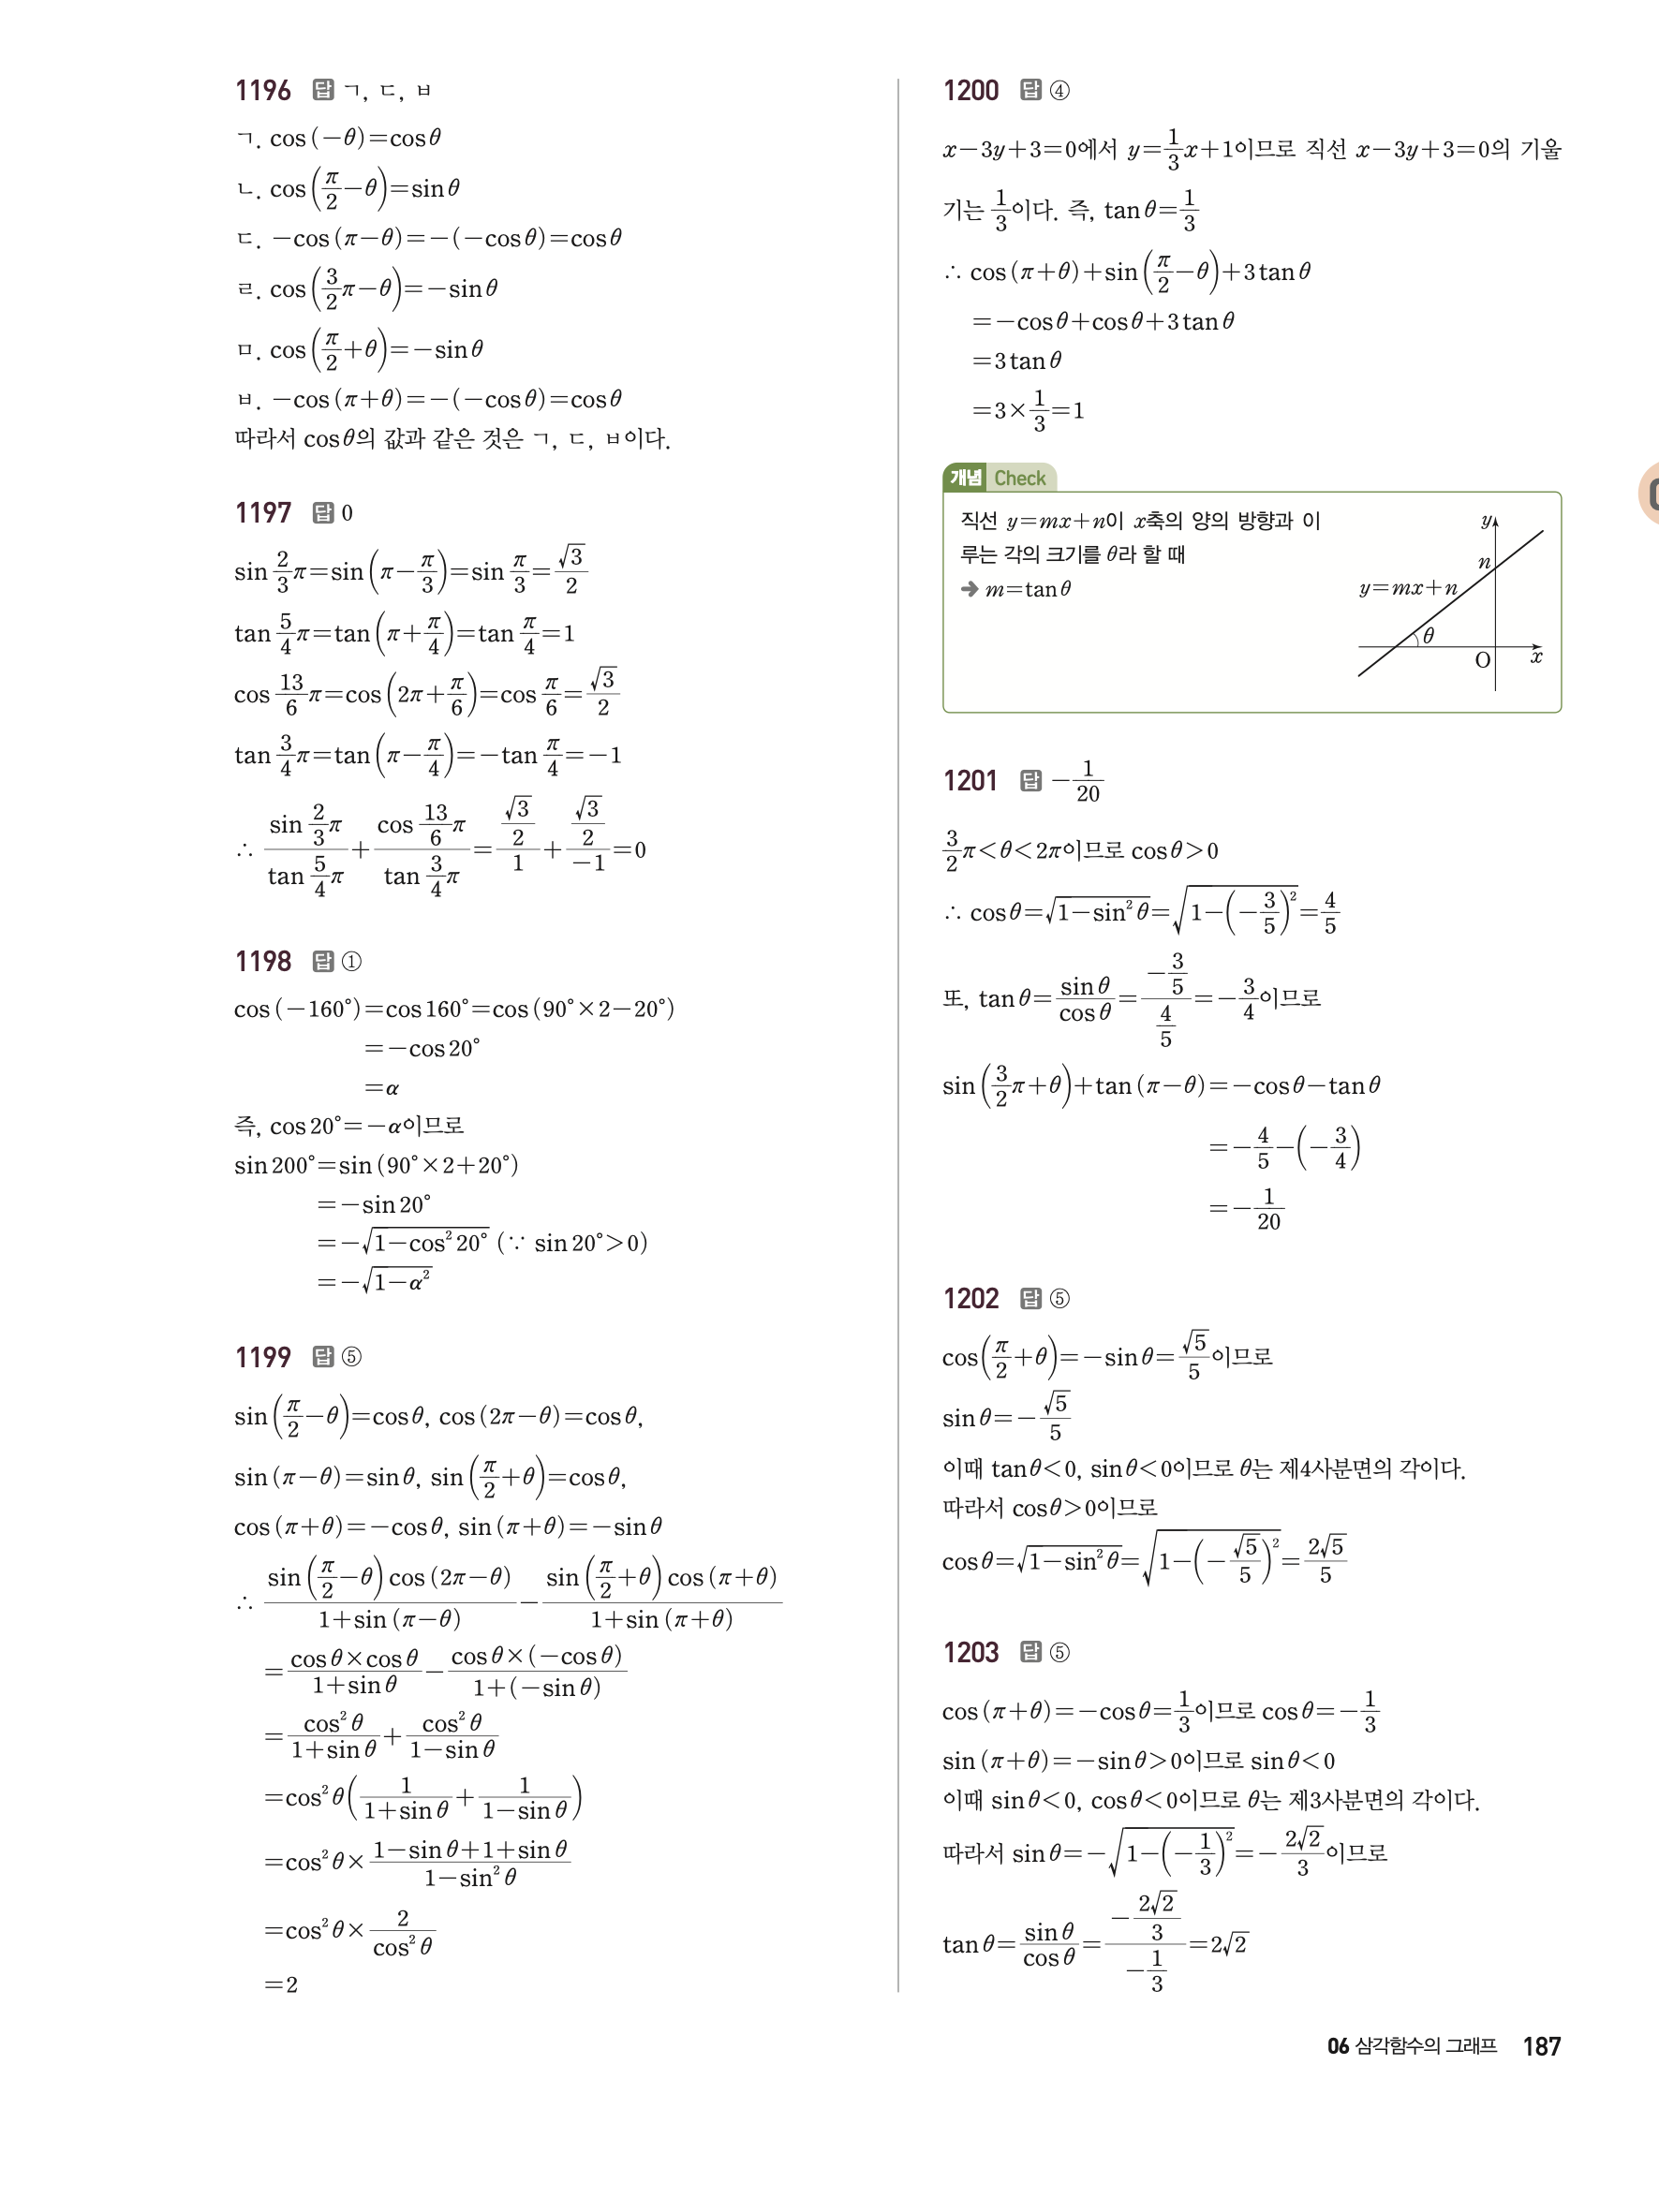 1196 답 ㄱ, ㄷ, ㅂ
ㄱ. cos(−θ)=cosθ
ㄴ. cos(π/2−θ)=sinθ
ㄷ. −cos(π−θ)=−(−cosθ)=cosθ
ㄹ. cos(3/2π−θ)=−sinθ
ㅁ. cos(π/2+θ)=−sinθ
ㅂ. −cos(π+θ)=−(−cosθ)=cosθ
따라서 cosθ의 값과 같은 것은 ㄱ, ㄷ, ㅂ이다.
1197 답 0
sin 2/3π=sin(π−π/3)=sin π/3=√3/2
tan 5/4π=tan(π+π/4)=tan π/4=1
cos 13/6π=cos(2π+π/6)=cos π/6=√3/2
tan 3/4π=tan(π−π/4)=−tan π/4=−1
∴ (sin 2/3π)/(tan 5/4π)+(cos 13/6π)/(tan 3/4π)=(√3/2)/1+(√3/2)/(−1)=0
1198 답 ①
cos(−160°)=cos160°=cos(90°×2−20°)
=−cos20°
=α
즉, cos20°=−α이므로
sin200°=sin(90°×2+20°)
=−sin20°
=−√(1−cos²20°) (∵ sin20°>0)
=−√(1−α²)
1199 답 ⑤
sin(π/2−θ)=cosθ, cos(2π−θ)=cosθ,
sin(π−θ)=sinθ, sin(π/2+θ)=cosθ,
cos(π+θ)=−cosθ, sin(π+θ)=−sinθ
∴ (sin(π/2−θ)cos(2π−θ))/(1+sin(π−θ))−(sin(π/2+θ)cos(π+θ))/(1+sin(π+θ))
=(cosθ×cosθ)/(1+sinθ)−(cosθ×(−cosθ))/(1+(−sinθ))
=cos²θ/(1+sinθ)+cos²θ/(1−sinθ)
=cos²θ(1/(1+sinθ)+1/(1−sinθ))
=cos²θ×(1−sinθ+1+sinθ)/(1−sin²θ)
=cos²θ×2/cos²θ
=2
1200 답 ④
x−3y+3=0에서 y=1/3x+1이므로 직선 x−3y+3=0의 기울
기는 1/3이다. 즉, tanθ=1/3
∴ cos(π+θ)+sin(π/2−θ)+3tanθ
=−cosθ+cosθ+3tanθ
=3tanθ
=3×1/3=1
개념 Check
직선 y=mx+n이 x축의 양의 방향과 이
루는 각의 크기를 θ라 할 때
➔ m=tanθ
y
n
y=mx+n
θ
O x
1201 답 −1/20
3/2π<θ<2π이므로 cosθ>0
∴ cosθ=√(1−sin²θ)=√(1−(−3/5)²)=4/5
또, tanθ=sinθ/cosθ=(−3/5)/(4/5)=−3/4이므로
sin(3/2π+θ)+tan(π−θ)=−cosθ−tanθ
=−4/5−(−3/4)
=−1/20
1202 답 ⑤
cos(π/2+θ)=−sinθ=√5/5이므로
sinθ=−√5/5
이때 tanθ<0, sinθ<0이므로 θ는 제4사분면의 각이다.
따라서 cosθ>0이므로
cosθ=√(1−sin²θ)=√(1−(−√5/5)²)=2√5/5
1203 답 ⑤
cos(π+θ)=−cosθ=1/3이므로 cosθ=−1/3
sin(π+θ)=−sinθ>0이므로 sinθ<0
이때 sinθ<0, cosθ<0이므로 θ는 제3사분면의 각이다.
따라서 sinθ=−√(1−(−1/3)²)=−2√2/3이므로
tanθ=sinθ/cosθ=(−2√2/3)/(−1/3)=2√2
06 삼각함수의 그래프 187